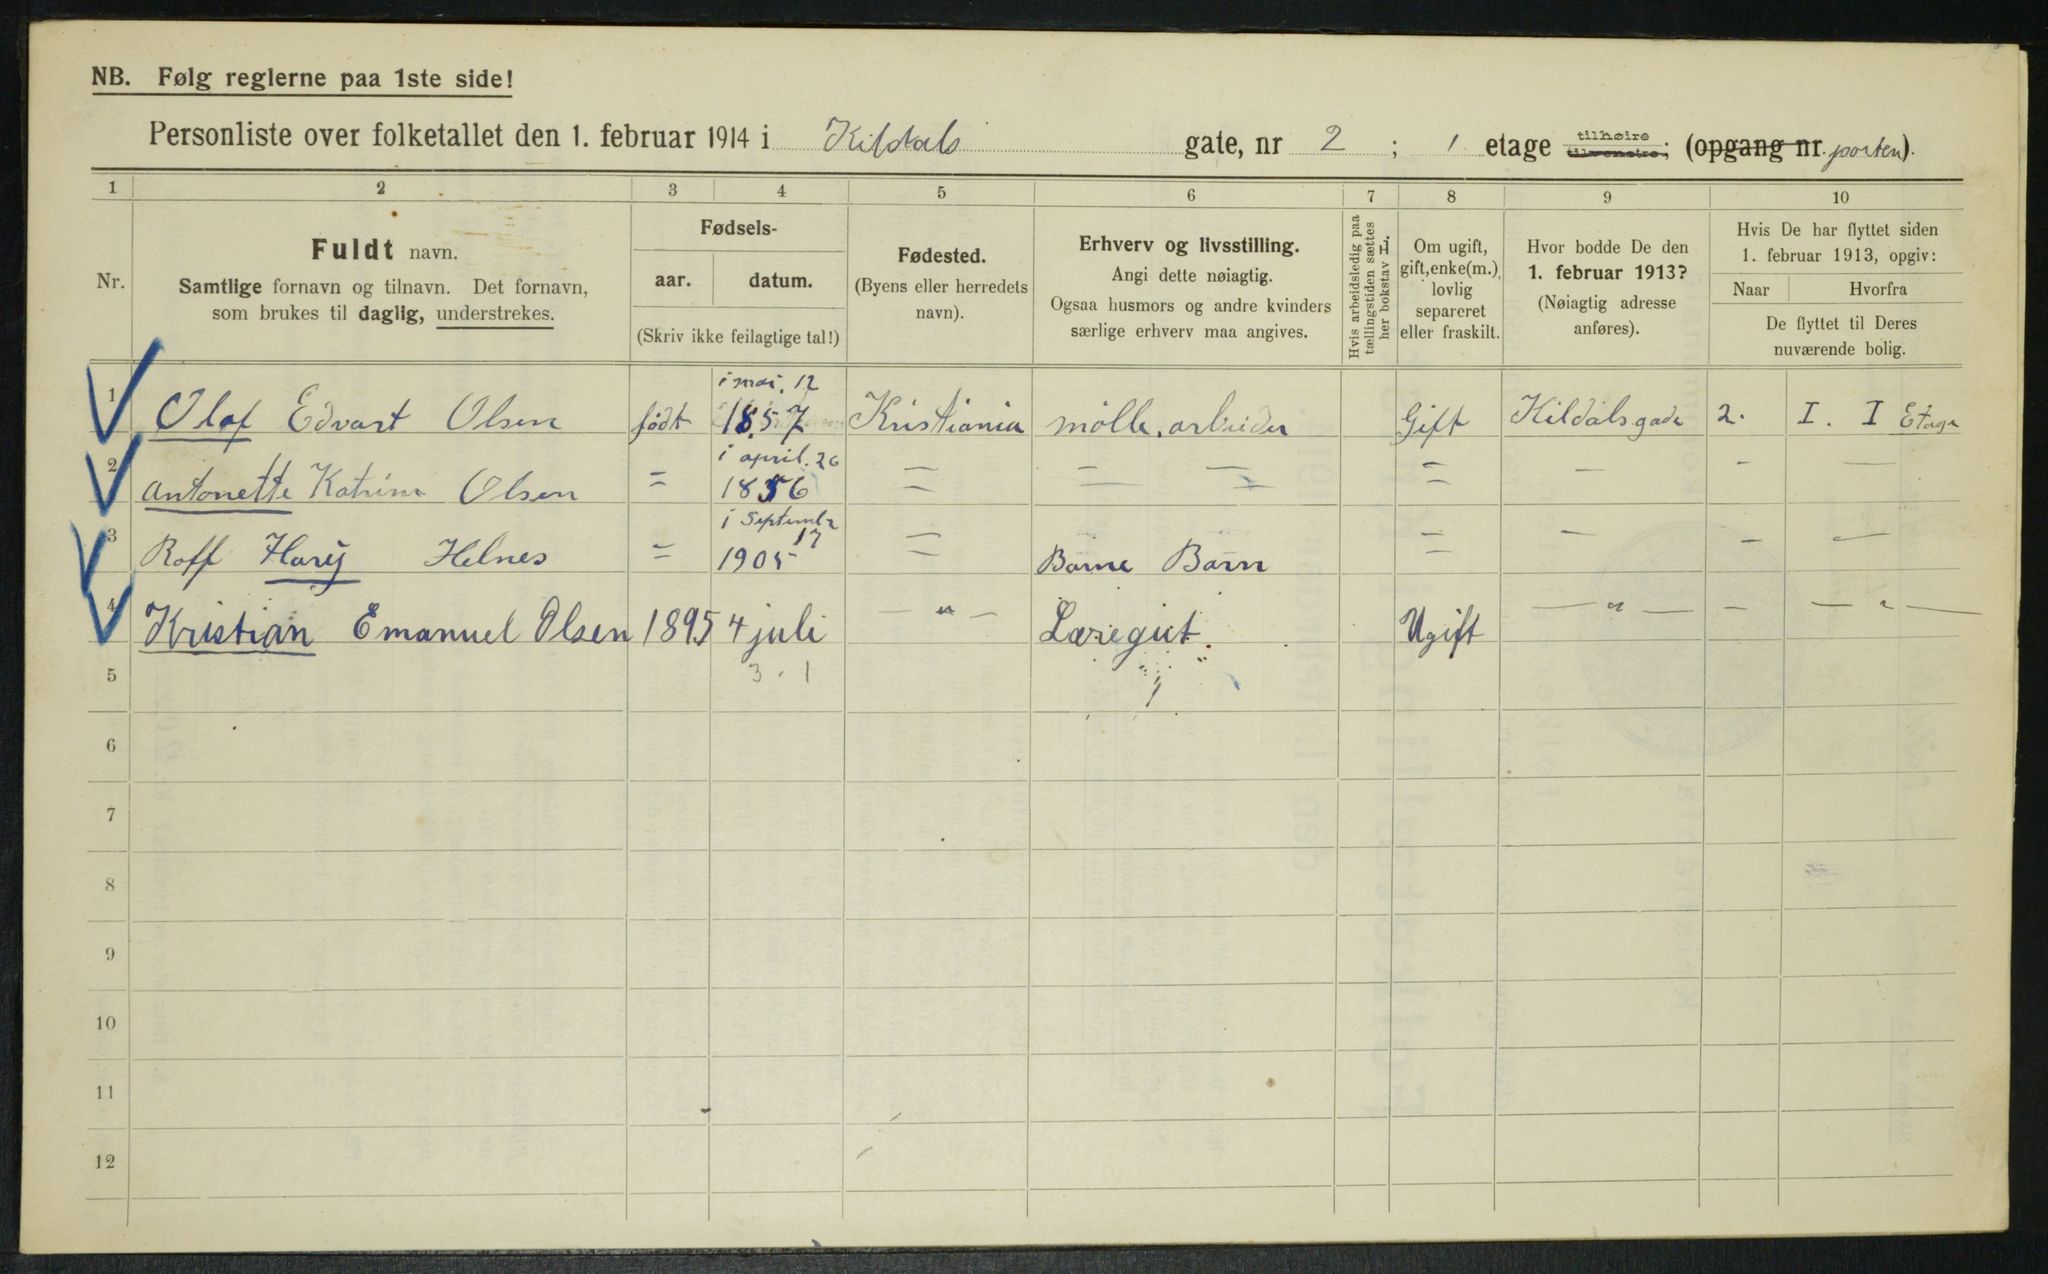 NB. Følg reglerne paa 1ste side!
Personliste over folketallet den 1. februar 1914 i Kildals gate, nr 2 ; 1 etage tilhøire tilvenstre; (opgang nr. porten).
1 2 3 4 5 6 7 8 9 10
Nr.
Fuldt navn.
Samtlige fornavn og tilnavn. Det fornavn,
som brukes til daglig, understrekes.
Fødsels-
aar. datum.
(Skriv ikke feilagtige tal!)
Fødested.
(Byens eller herredets
navn).
Erhverv og livsstilling.
Angi dette nøiagtig.
Ogsaa husmors og andre kvinders
særlige erhverv maa angives.
Hvis arbeidsledig paa
tællingstiden sættes
her bokstav L.
Om ugift,
gift, enke(m.),
lovlig
separeret
eller fraskilt.
Hvor bodde De den
1. februar 1913?
(Nøiagtig adresse
anføres).
Hvis De har flyttet siden
1. februar 1913, opgiv:
Naar Hvorfra
De flyttet til Deres
nuværende bolig.
i mai. 12
1 Olaf Edvart Olsen født 1857 Kristiania mølle. arbeider Gift Kildalsgade 2. I. I Etage
i april. 26
2 Antonette Katrine Olsen = 1856 = — — = — - —
i Septembr
17
3 Roff Harij Helnes = 1905 = Barne Barn = — - —
4 Kristian Emanuel Olsen 1895 4 juli — " — Læregut. Ugift — " — — — " —
3 . 1
5
6
7
8
9
10
11
12